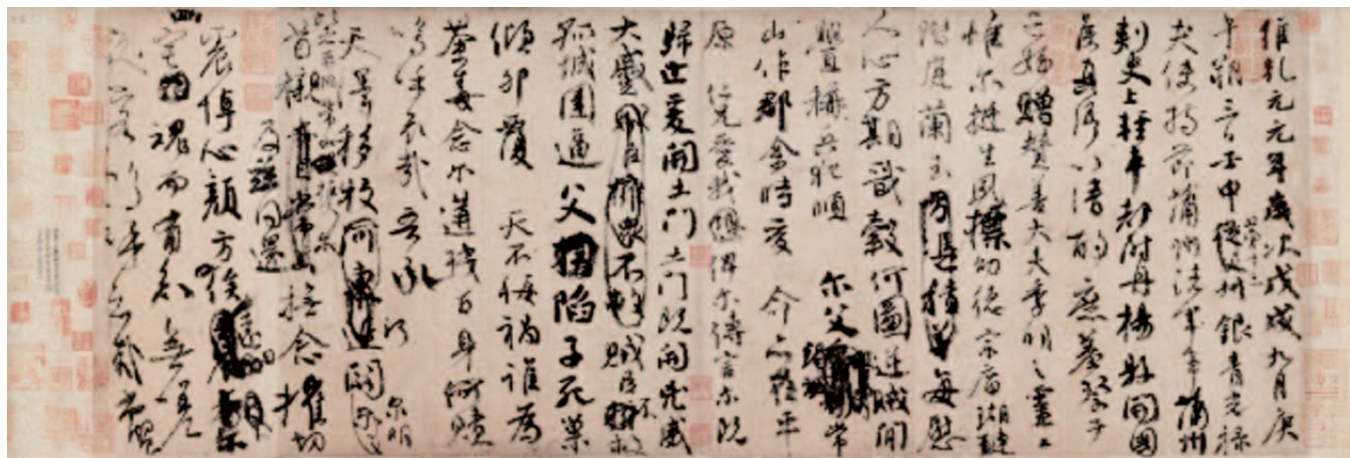 維乾元元年歲次戊戌九月庚
午朔三日壬申第十三叔銀青光祿
夫使持節蒲州諸軍事蒲州
刺史上輕車都尉丹楊縣開國
侯真卿以清酌庶羞祭于
亡姪贈贊善大夫季明之靈曰
惟爾挺生夙標幼德宗廟瑚璉
階庭蘭玉方憑積善每慰
人心方期戩穀何圖逆賊閒
舋稱兵犯順爾父竭誠常
山作郡余時受命亦在平
原仁兄愛我俾爾傳言爾既
歸止爰開土門土門既開兇威
大蹙賊臣擁眾不救賊臣不救
孤城圍逼父陷子死巢
傾卵覆天不悔禍誰為
荼毒念爾遘殘百身何贖
嗚乎哀哉吾承
天澤移牧河關爾明
比者再陷常山攜爾
首櫬及茲同還撫念摧切
震悼心顏方俟遠日
宅魂而有知無嗟
久客嗚呼哀哉尚饗